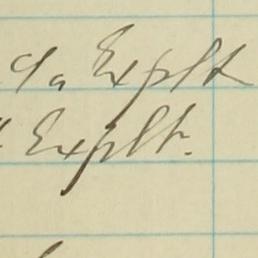 Da Explt
Explt.